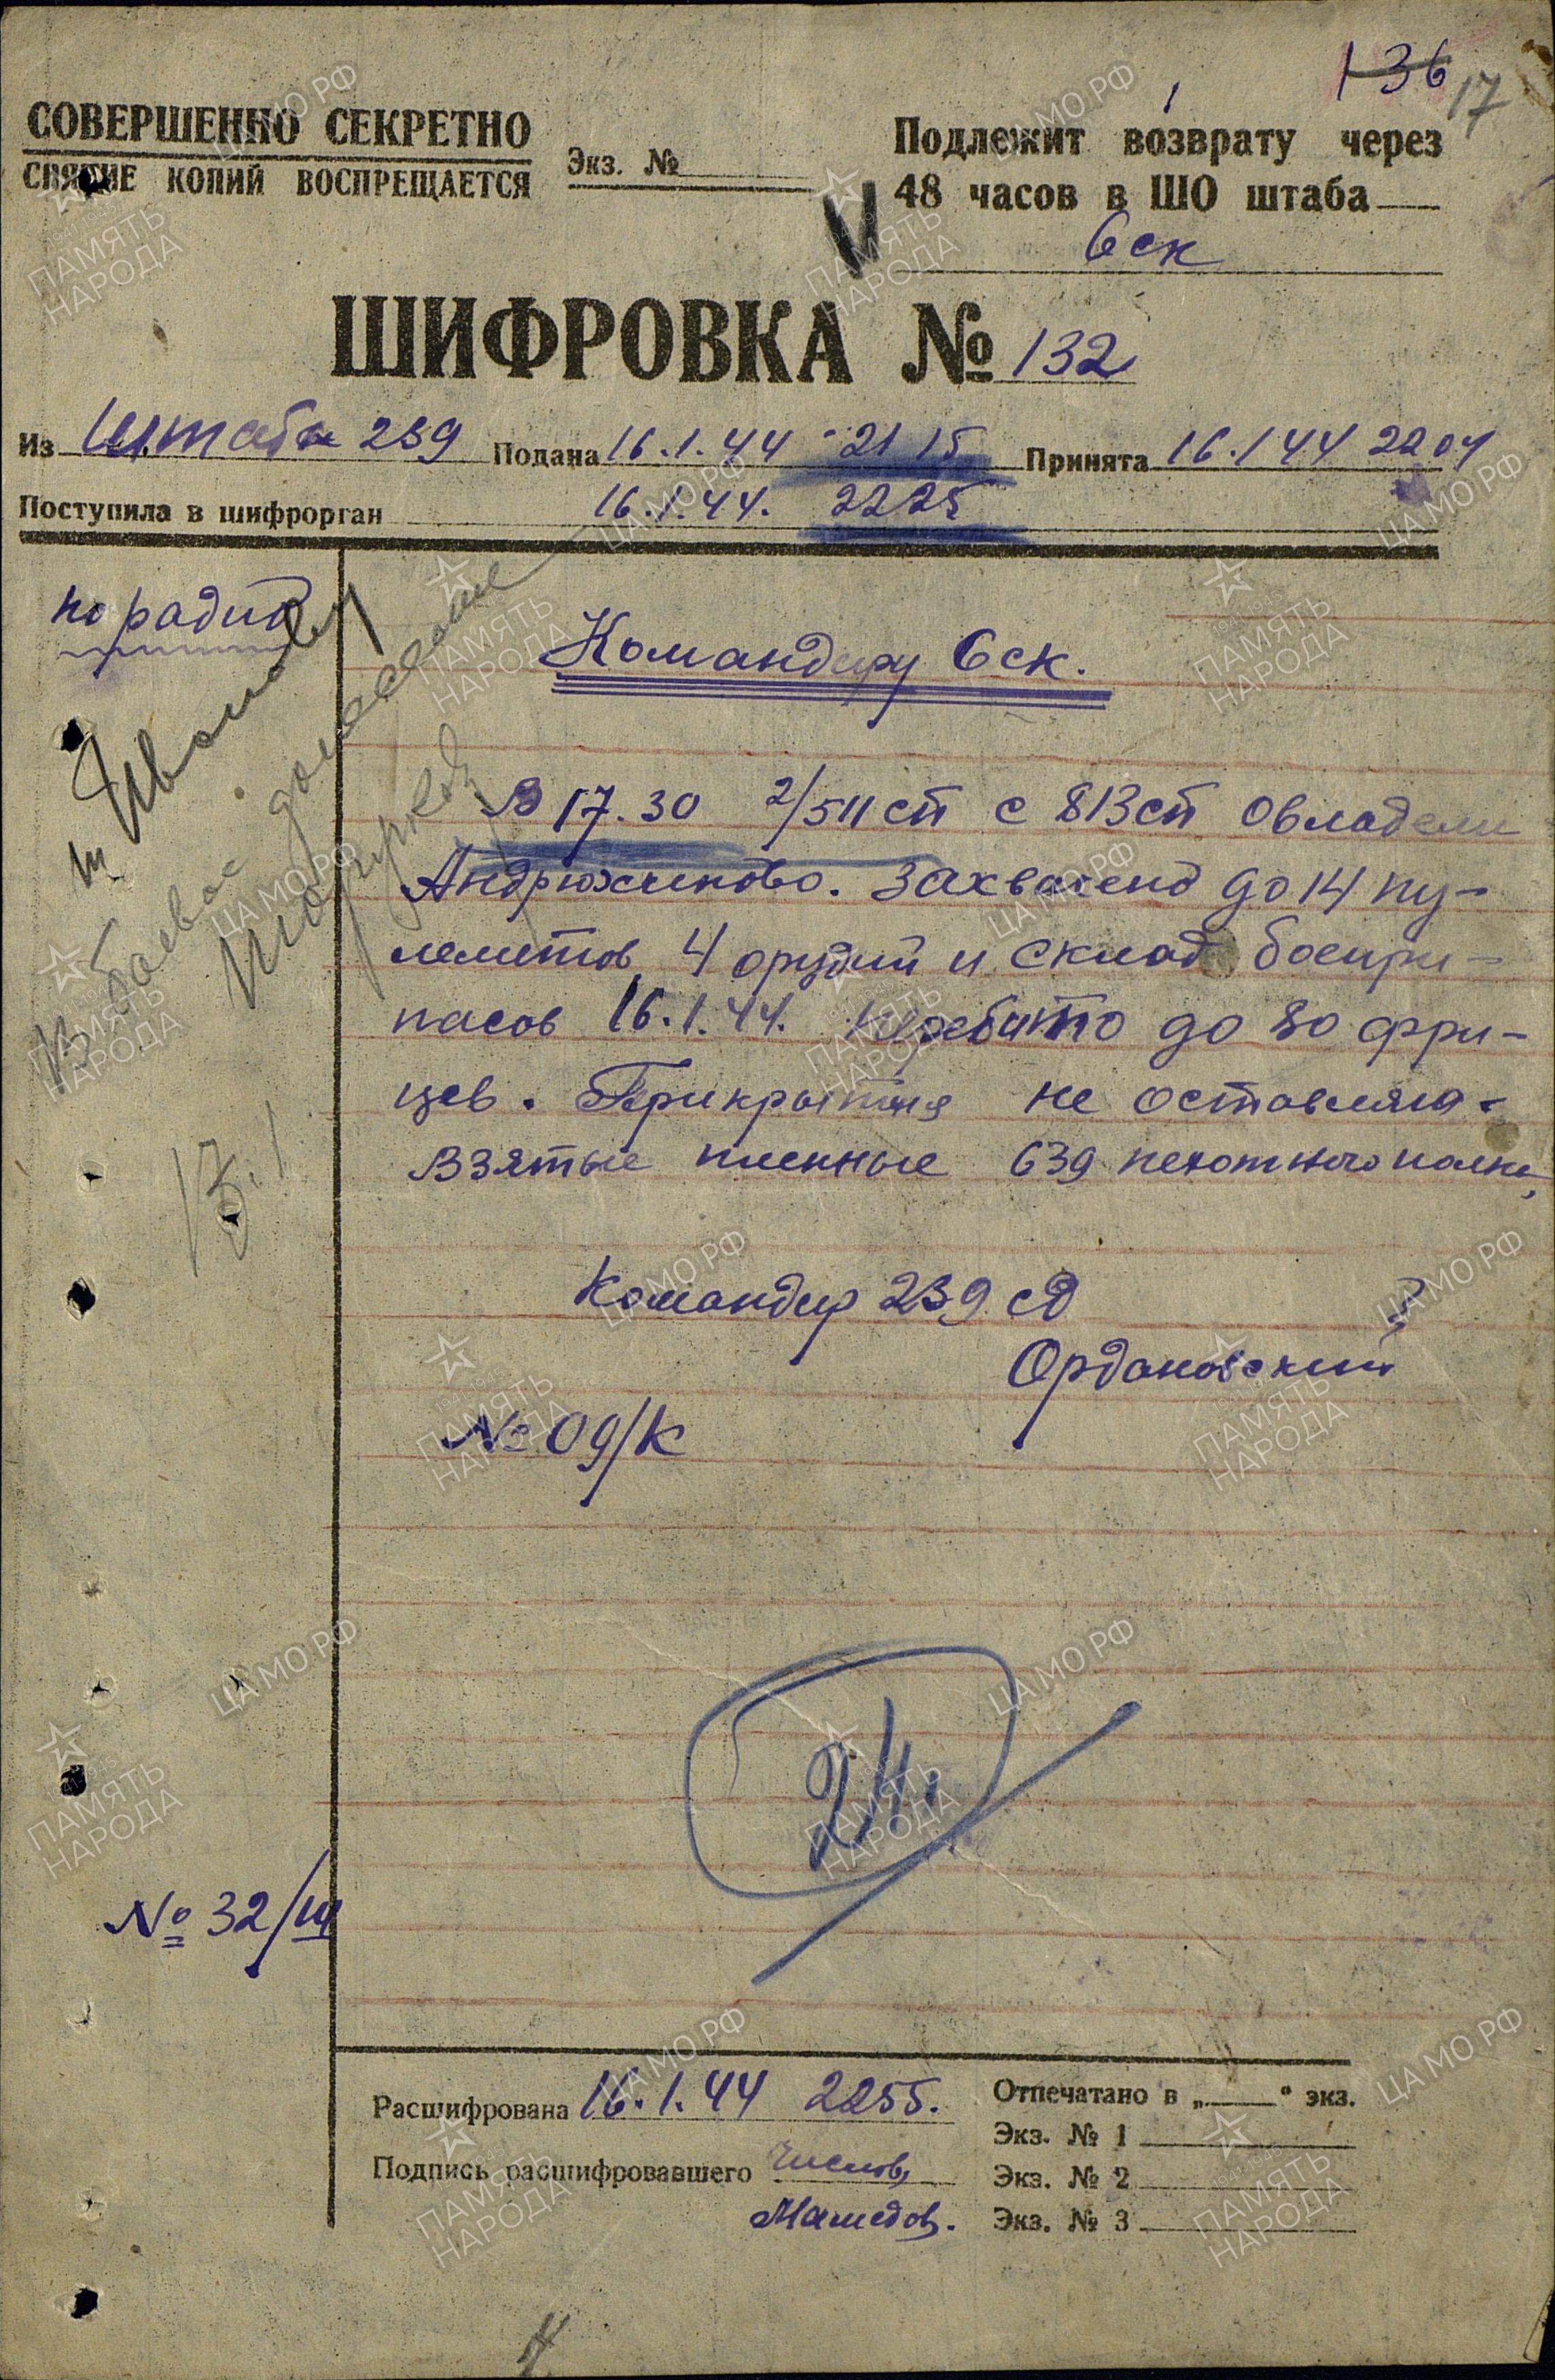 136 17
СОВЕРШЕННО СЕКРЕТНО
СНЯТИЕ КОПИЙ ВОСПРЕЩАЕТСЯ
Экз. №
Подлежит возврату через
48 часов в ШО штаба
6 ск
ШИФРОВКА № 132
Из Штаба 239 Подана 16.1.44 21 15 Принята 16.1 44 22 04
Поступила в шифрорган 16.1.44. 22 25
по радио
Командиру 6 ск.
В 17.30 2/511 сп с 813 сп овладели
Андрюхиново. Захвачено до 14 пу-
леметов, 4 орудий и склад боепри-
пасов 16.1.44. Перебито до 80 фри-
цев. Прикрытия не оставляли.
Взятые пленные 639 пехотного полка,
Командир 239 сд
Ордановский
№ 09/К
В боевое донесение
17.1
24.
№ 32/ш
Расшифрована 16.1.44 22 55.
Подпись расшифровавшего Числов,
Отпечатано в „ “ экз.
Экз. № 1
Экз. № 2
Экз. № 3
ПАМЯТЬ НАРОДА
ЦАМО.РФ